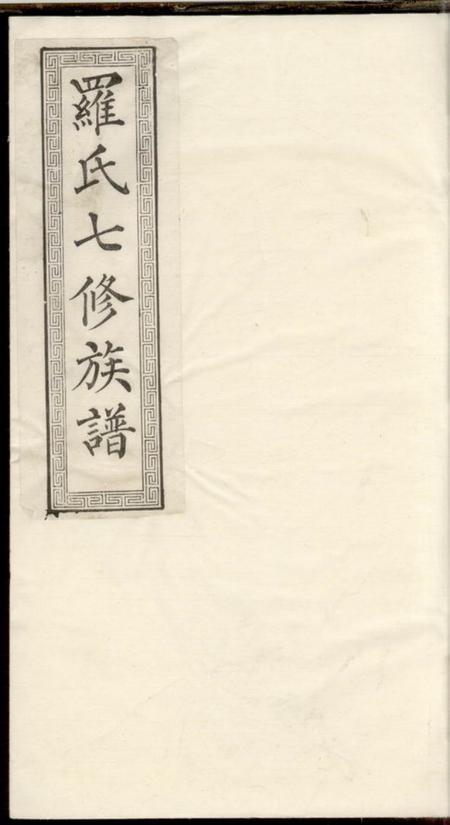 羅氏七修族譜